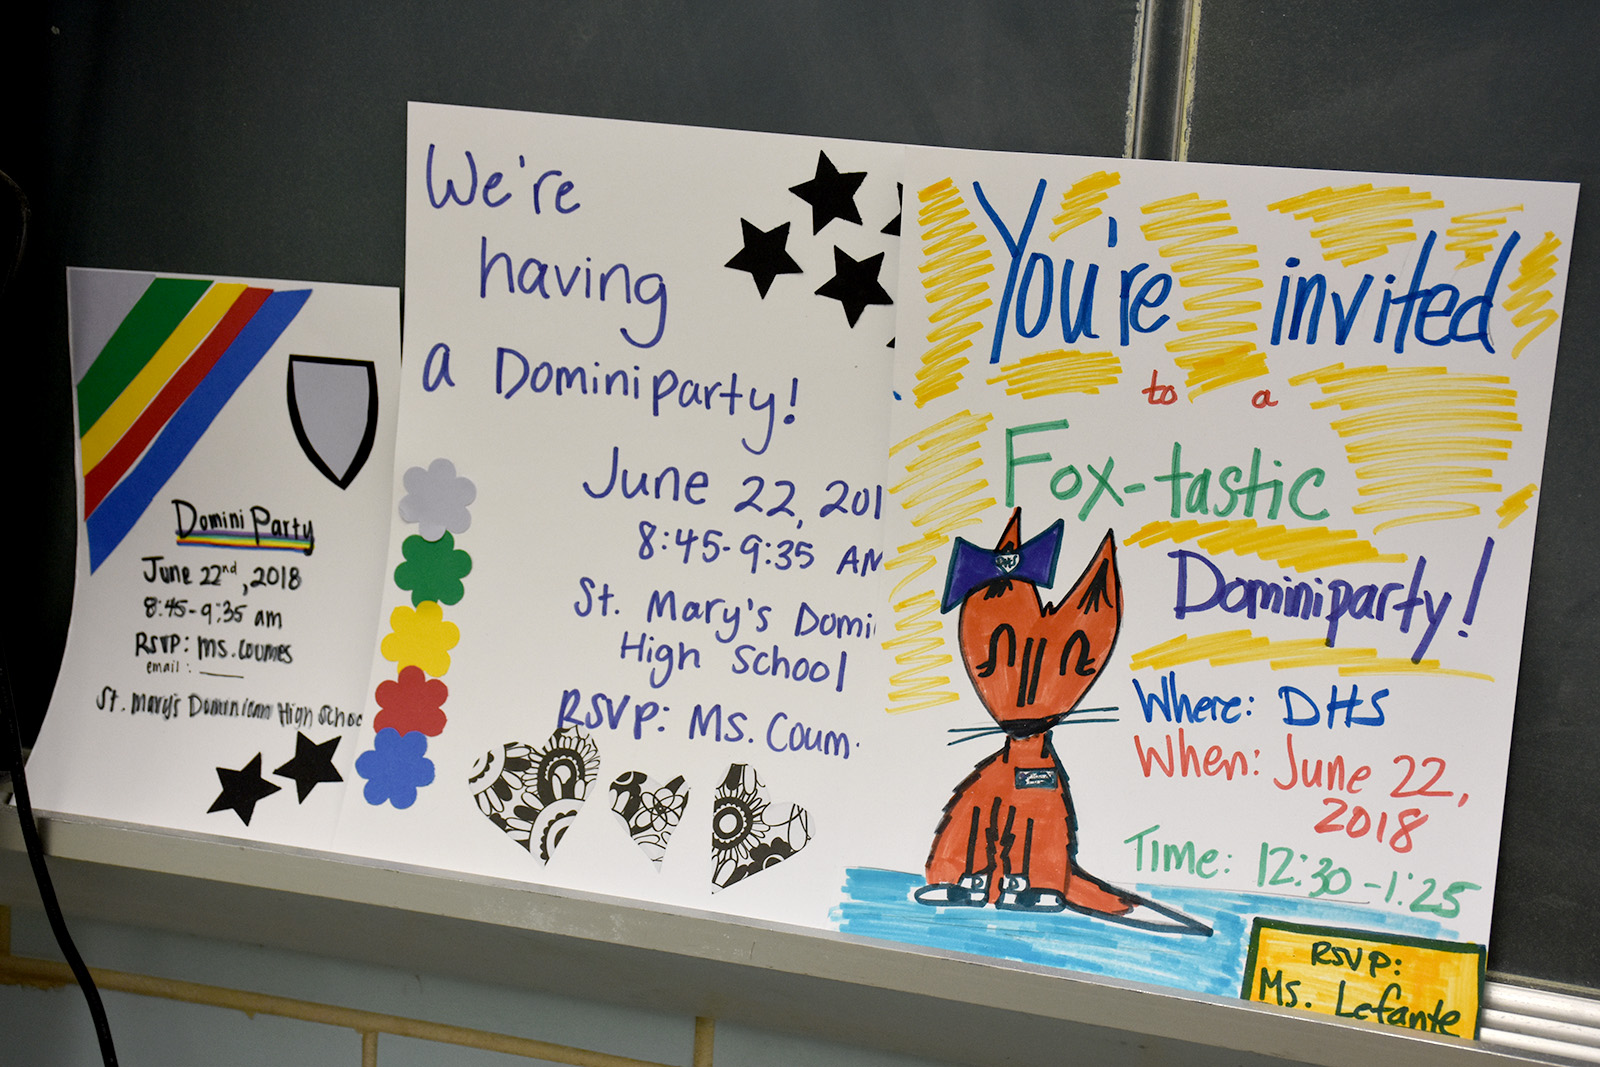 Domini Party
June 22nd, 2018
8:45-9:35 am
RSVP: Ms. Coumes
email:
St. Mary's Dominican High Schoo
We're
having
a Dominiparty!
June 22, 201
8:45-9:35 AM
St. Mary's Domi
High School
RSVP: Ms. Coum
You're invited
to a
Fox-tastic
Dominiparty!
DHS
Where: DHS
When: June 22,
2018
Time: 12:30-1:25
RSVP:
Ms. Lefante